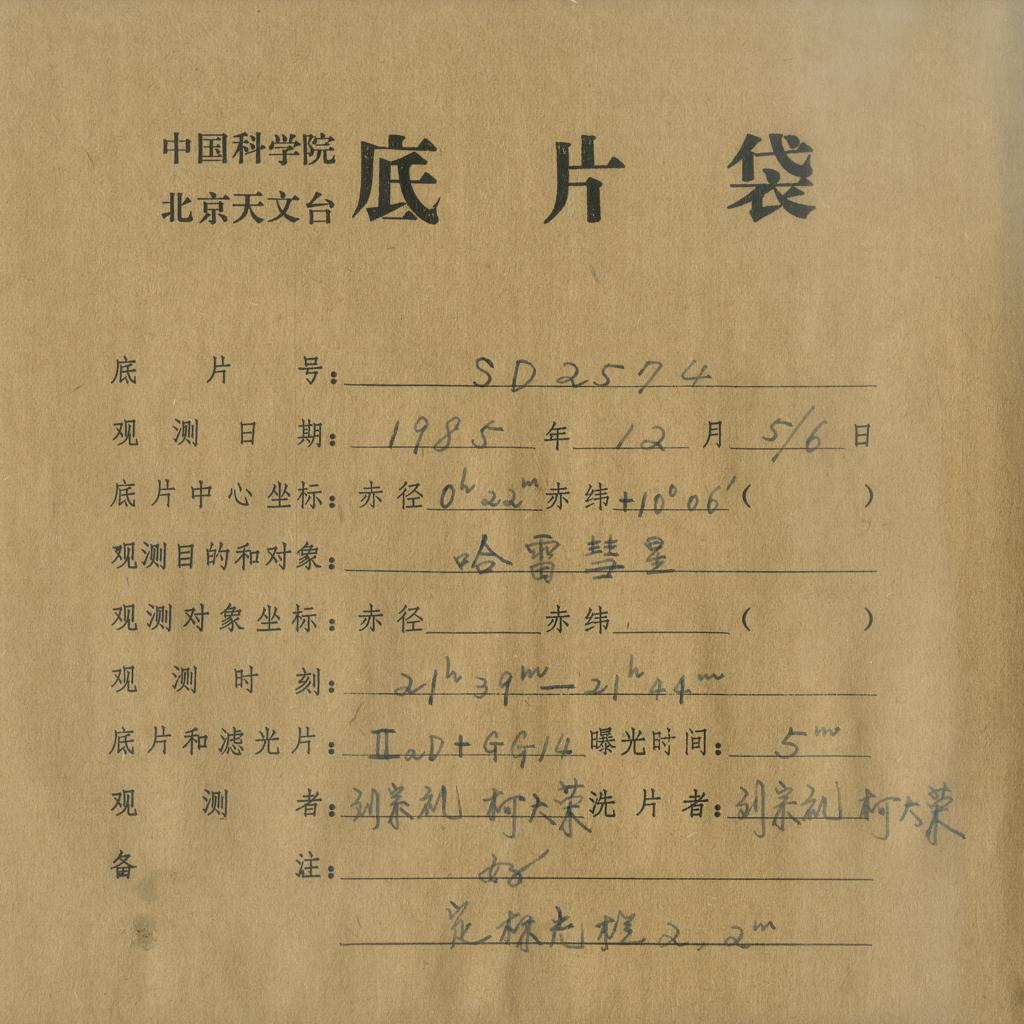 中国科学院
北京天文台
底片袋
底片号: SD2574
观测日期: 1985年12月5/6日
底片中心坐标: 赤径0ʰ22ᵐ赤纬+10°06′( )
观测目的和对象: 哈雷彗星
观测对象坐标: 赤径 赤纬 ( )
观测时刻: 21ʰ39ᵐ—21ʰ44ᵐ
底片和滤光片: ⅡaD+GG14 曝光时间: 5ᵐ
观测者: 刘宗礼 柯大荣 洗片者: 刘宗礼 柯大荣
备注: 好
光栏2,2ᵐ